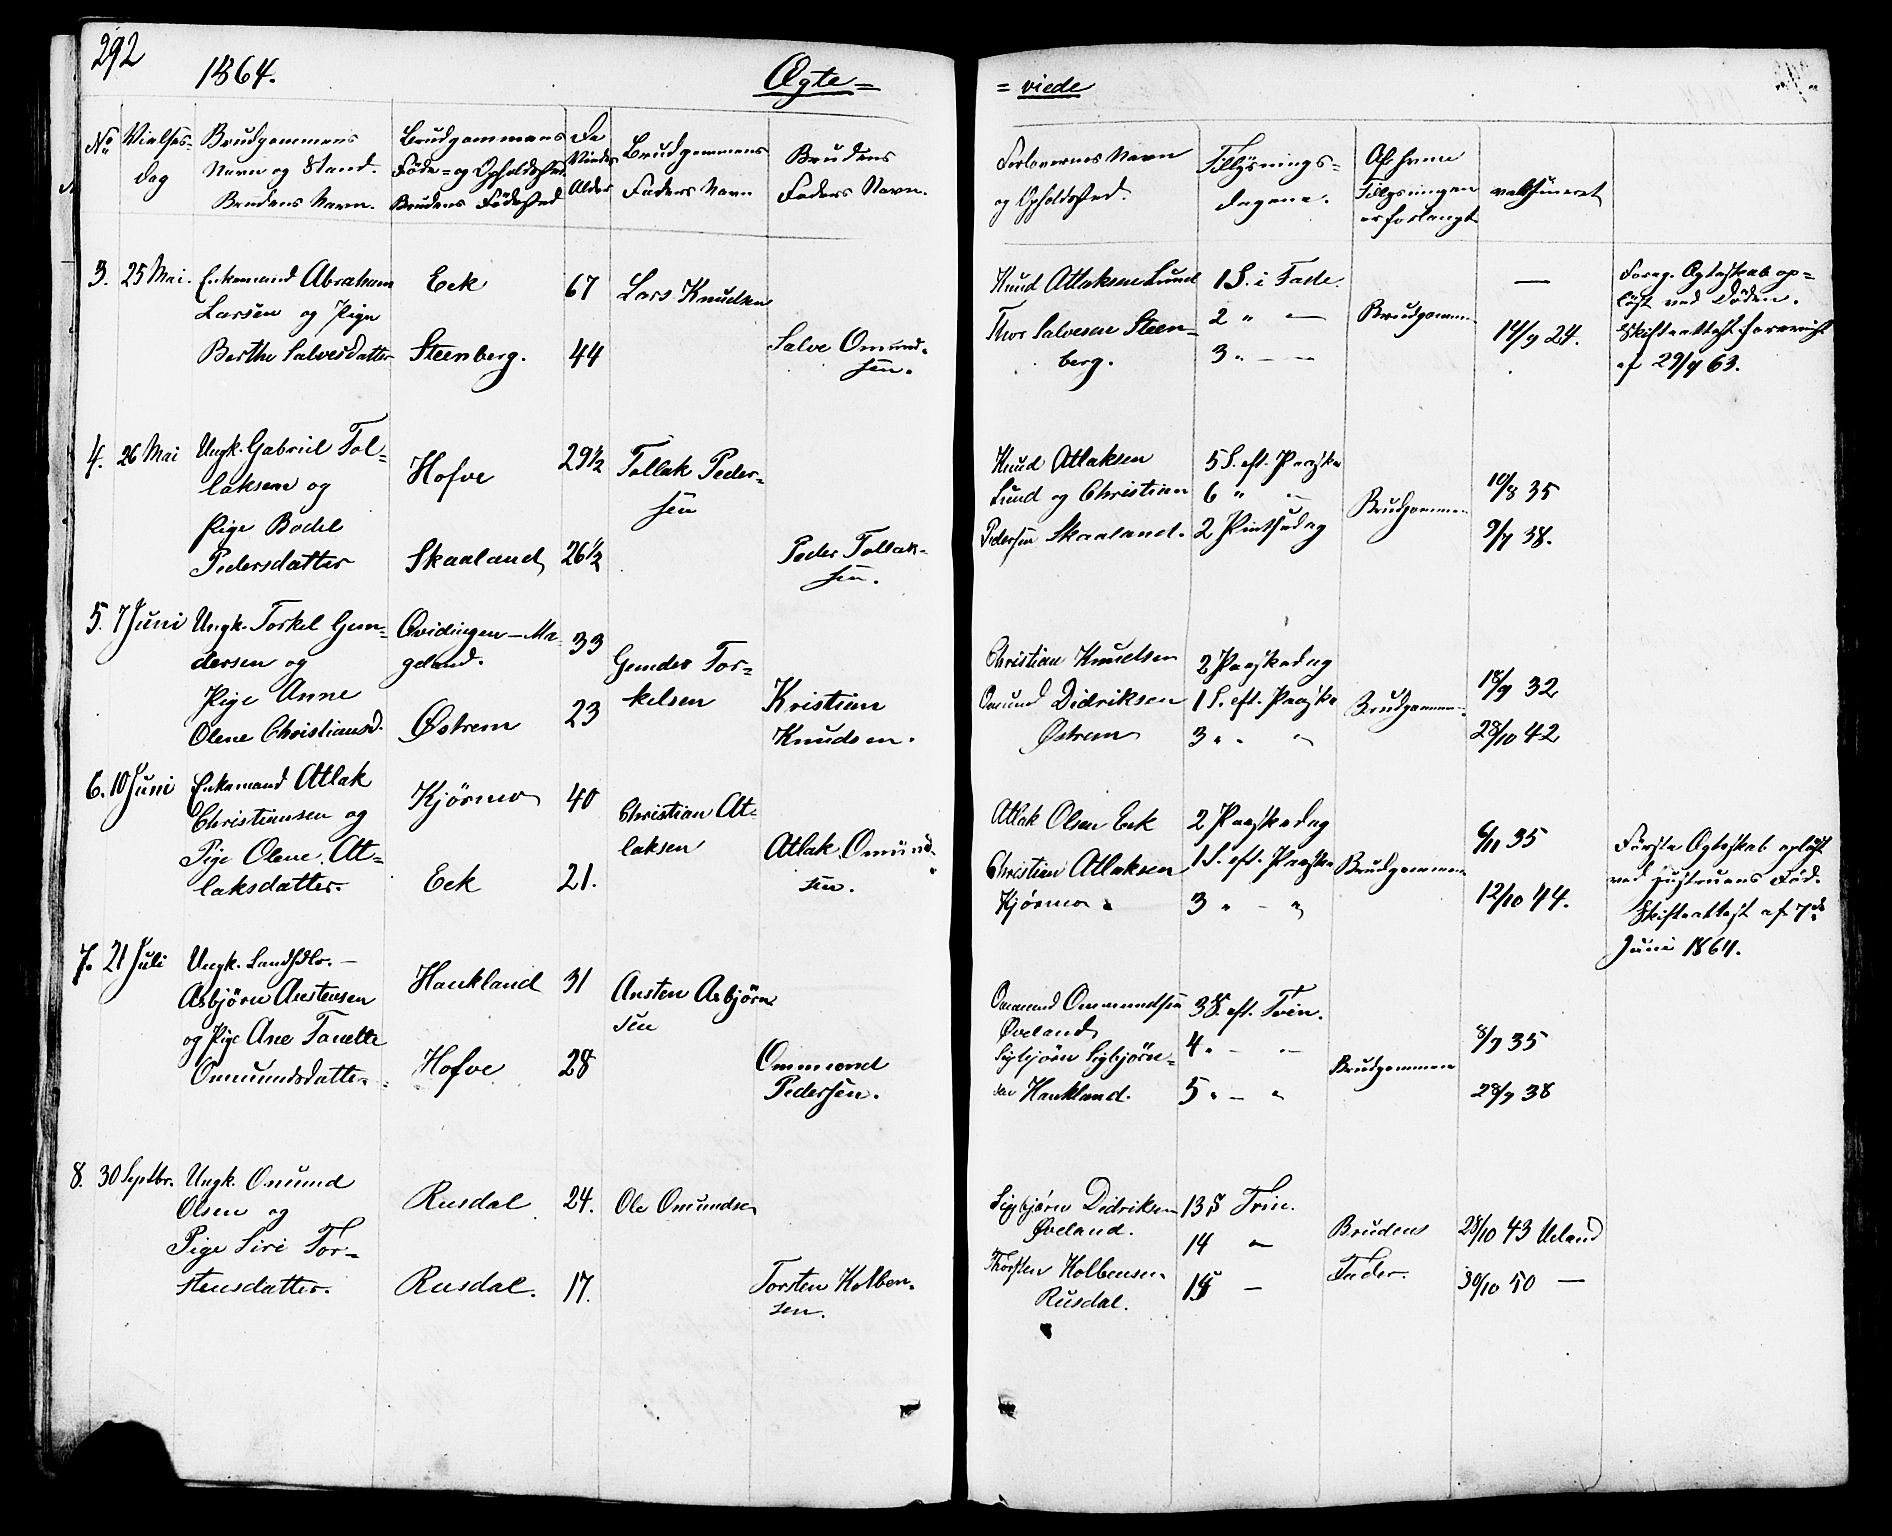 292
1864.
Ægte=
= viede
No
Vielses-
dag
Brudgommens
Navn og Stand.
Brudens Navn.
Brudgommens
Føde- og Opholdssted.
Brudens Fødested
De
Viedes
Alder
Brudgommens
Faders Navn
Brudens
Faders Navn.
Forlovernes Navn
og Opholdssted.
Tillysnings-
dagene.
Af hvem
Tillysningen
er forlangt
vaksineret
3. 25 Mai.
Enkemand Abraham
Larsen og Pige
Berthe Salvesdatter
Eek
Steenberg.
67
44
Lars Knudsen
Salve Omund-
sen.
Knud Atlaksen Lund
Thor Salvesen Steen-
berg.
1 S. i Faste.
2 " —
3 " — —
Brudgommen
—
14/9 24.
Foreg. Ægteskab op-
løst ved Døden.
Skifteattest
af 29/9 63.
4. 26 Mai
Ungk. Gabriel Tol-
laksen og
Pige Bodel
Pedersdatter
Hofve
Skaaland
29½
26½
Tollak Peder-
sen
Peder Tollak-
sen.
Knud Atlaksen
Lund og Christian
Pedersen Skaaland.
5 S. eft. Paaske
6 " —
2 Pintsedag
Brudgommen
10/8 35
9/7 38.
5. 7 Juni
Ungk. Torkel Gun-
dersen og
Pige Anne
Olene Christiansd.
Qvidingen — Ma-
geland.
Østrem
33
23
Gunder Tor-
kelsen
Kristian
Knudsen.
Christian Knudsen
Omund Didriksen
Østrem
2 Paaskedag
1 S. eft. Paaske
3 " "
Brudgommen
18/9 32
28/10 42
6. 10 Juni
Enkemand Atlak
Christiansen og
Pige Olene At-
laksdatter.
Kjørmo
Eek
40
21.
Christian At-
laksen
Atlak Omund-
sen.
Atlak Olsen Eek
Christian Atlaksen
Kjørmo
2 Paaskedag
1 S. eft. Paaske
3 " — "
Brudgommen
6/11 35
12/10 44.
Første Ægteskab opløst
ved Hustruens Død.
Skifteattest af 7de
Juni 1864.
7. 21 Juli
Ungk. Landhdlr. —
Asbjørn Austensen
og Pige Ane Tonette
Omundsdatter
Haukland
Hofve
31
28
Austen Asbjørn
sen
Ommond
Pedersen.
Ommund Ommundsen
Øveland
Sigbjørn Sigbjørn-
sen Haukland.
3 S. eft. Trin.
4 " — "
5 " — "
Brudgommen
8/9 35
28/9 38
8. 30 Septbr.
Ungk. Omund
Olsen og
Pige Siri Tor-
stensdatter.
Rusdal
Rusdal.
24.
17.
Ole Omundsen
Torsten Kolben-
sen.
Sigbjørn Didriksen
Øveland.
Thorsten Kolbensen
Rusdal.
13 S Trin.
14 —
15 —
Brudens
Fader.
28/10 43 Ueland
30/10 50 —